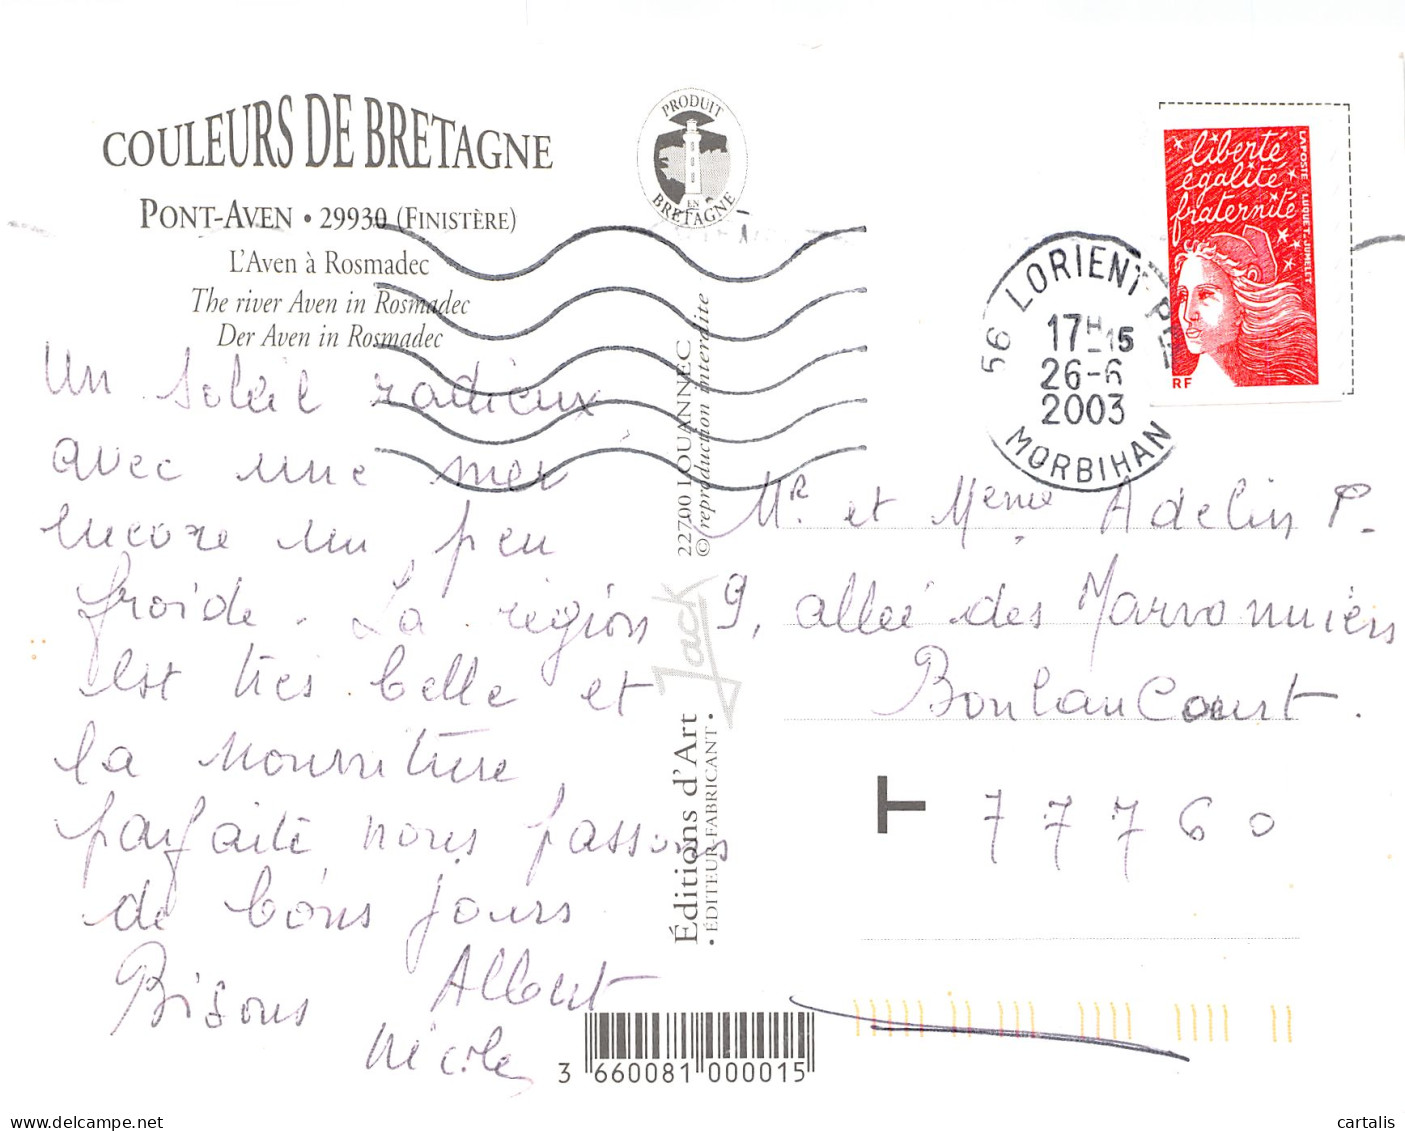 COULEURS DE BRETAGNE
PONT-AVEN • 29930 (FINISTÈRE)
L'Aven à Rosmadec
The river Aven in Rosmadec
Der Aven in Rosmadec
PRODUIT
EN
BRETAGNE
Un soleil radieux
avec une mer
encore un peu
froide. La région
est très belle et
la nourriture
parfaite nous passons
de bons jours
Bisous Albert
Nicole
22700 LOUANNEC
© reproduction interdite
Jack
Éditions d'Art
• ÉDITEUR FABRICANT •
3 660081 000015
56 LORIENT
17H15
26-6
2003
MORBIHAN
liberté
égalité
fraternité
LA POSTE LUQUET-JUMELET
RF
MR et Meme Adelin P.
9, allée des Marronniers
Boulancourt.
T 77760
cartalis.delcampe.net